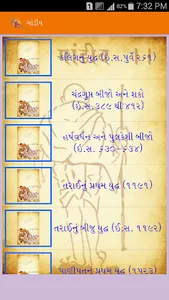 7:32 PM
ગાંડીવ
કલિંગનું યુદ્ધ (ઇ.સ.પૂર્વે ૨૬૧)
ચંદ્રગુપ્ત બીજો અને શકો
(ઇ.સ.૩૮૯ થી ૪૧૨)
હર્ષવર્ધન અને પુલકેશી બીજો
(ઇ.સ. ૬૩૦ - ૬૩૪)
તરાઈનું પ્રથમ યુદ્ધ (૧૧૯૧)
તરાઈનું બીજુ યુદ્ધ (ઇ.સ. ૧૧૯૨)
પાણીપતનું પ્રથમ યુદ્ધ (૧૫૨૩)